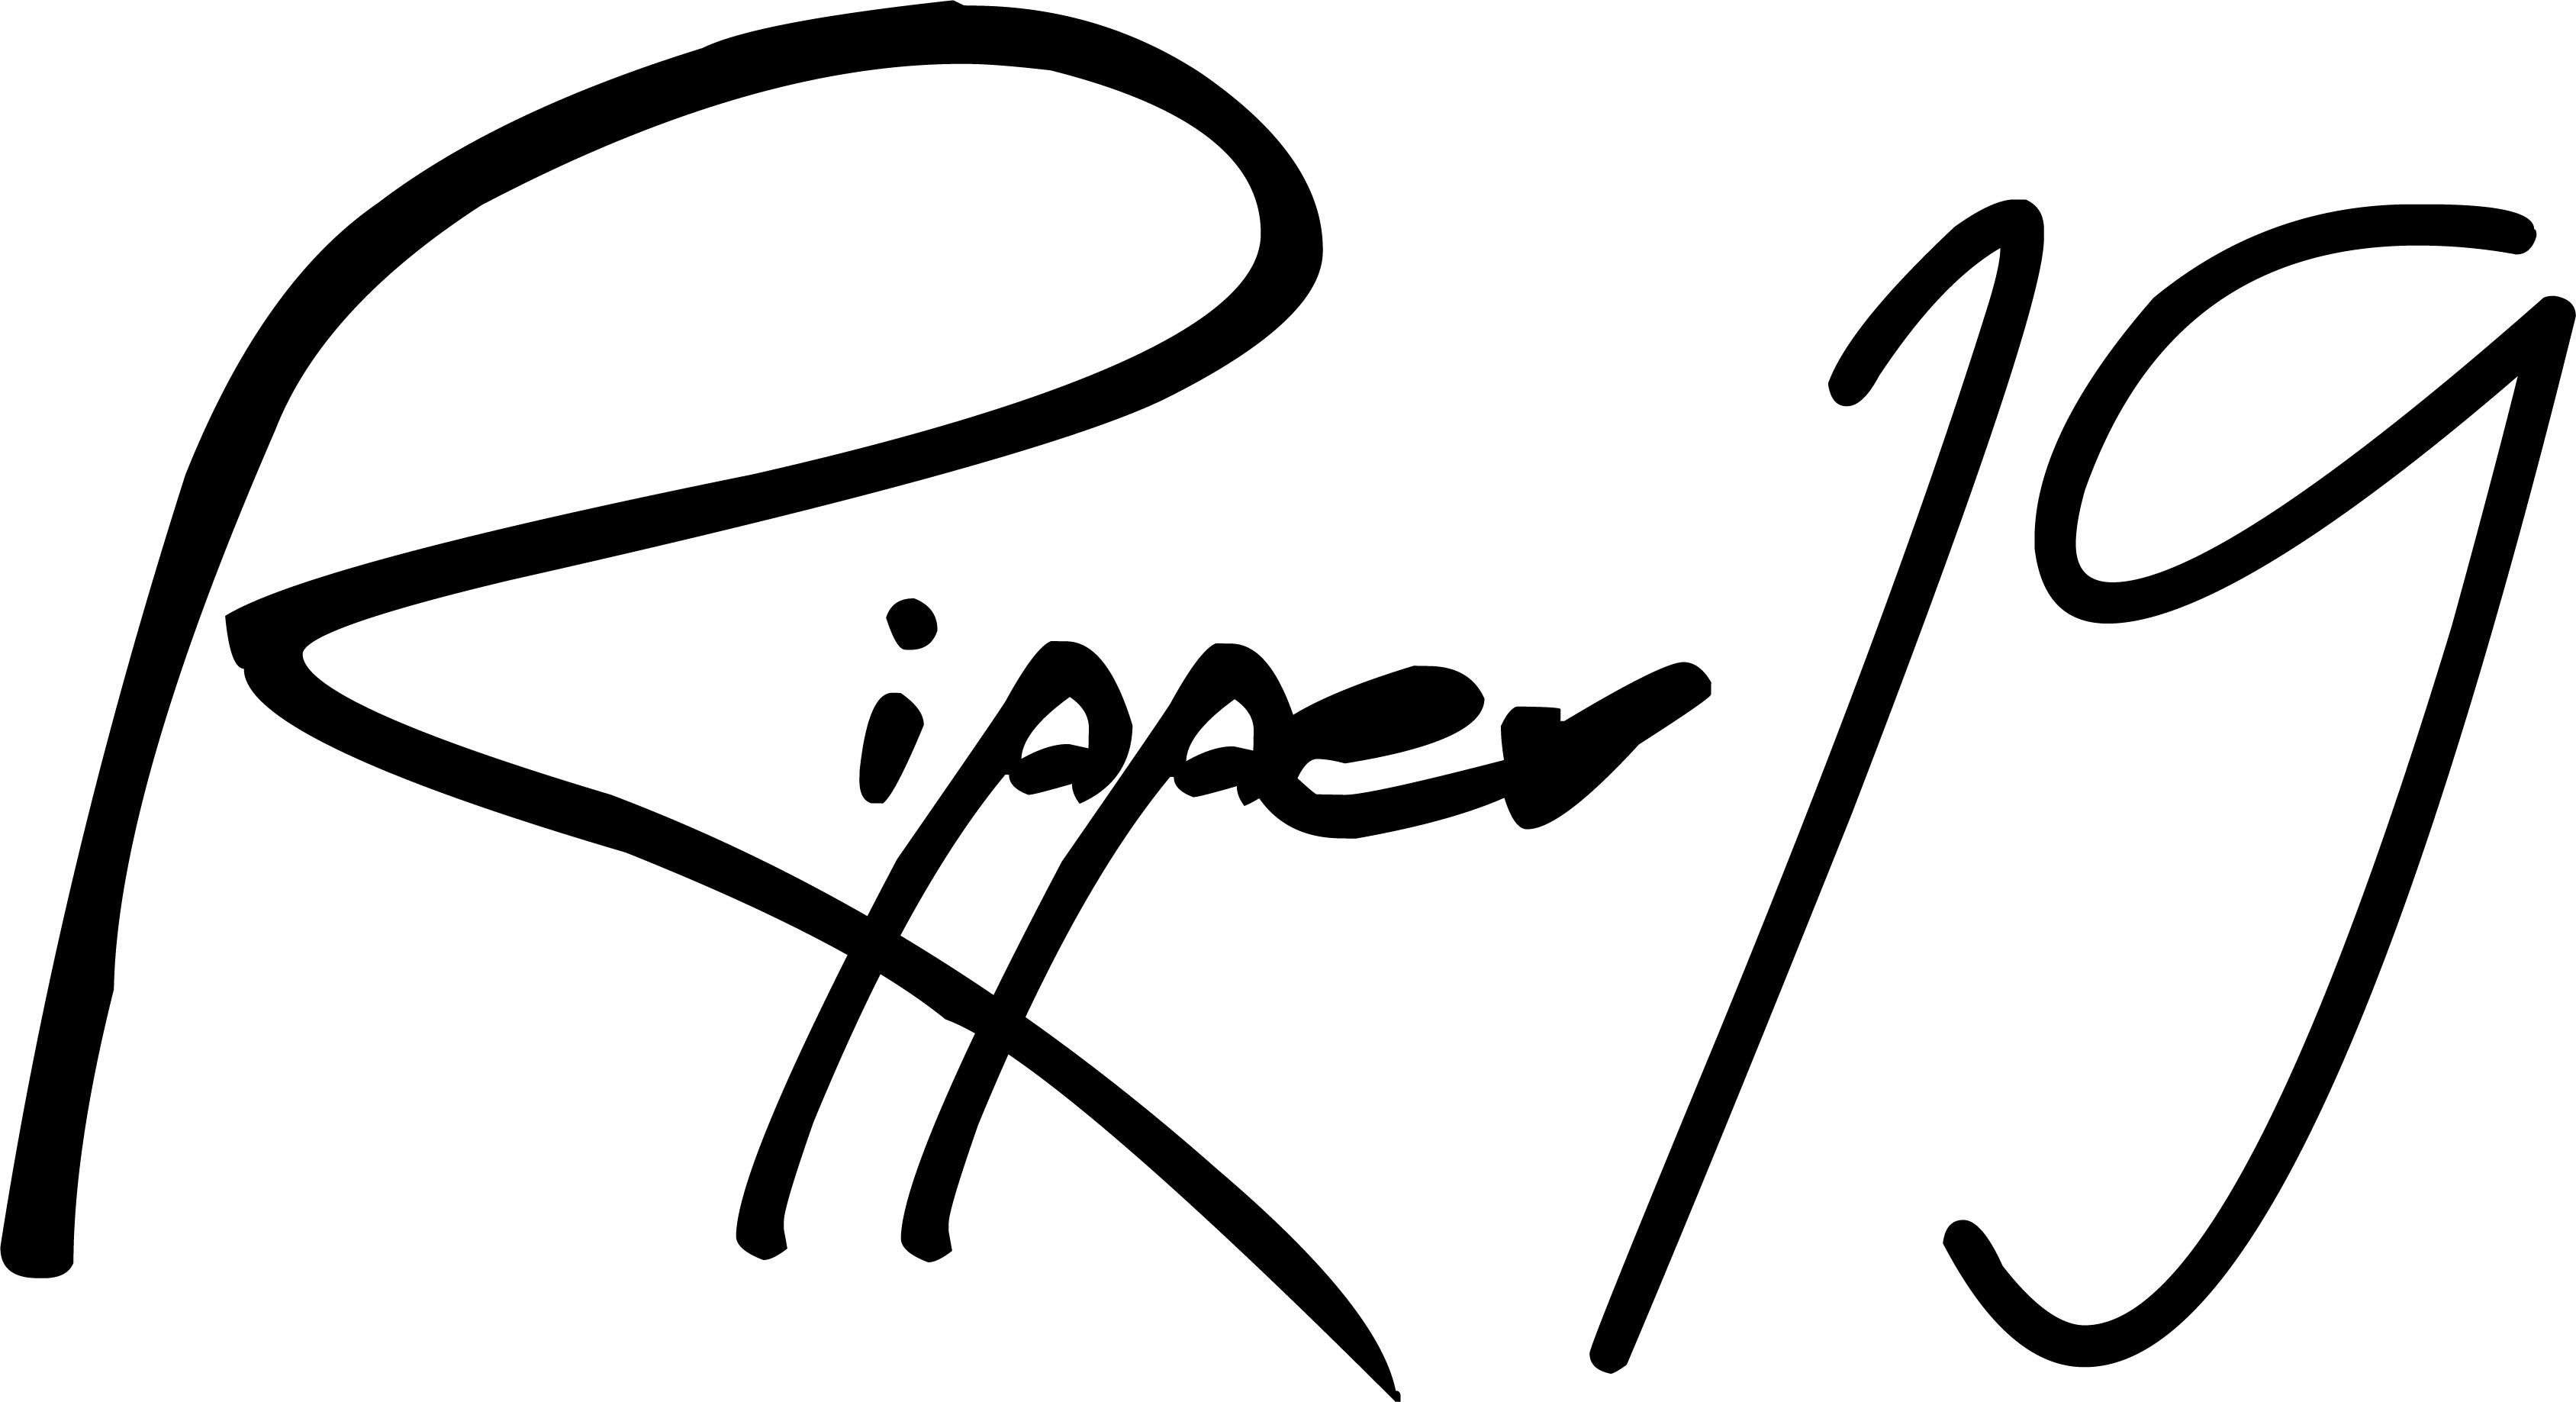 Ripper 19